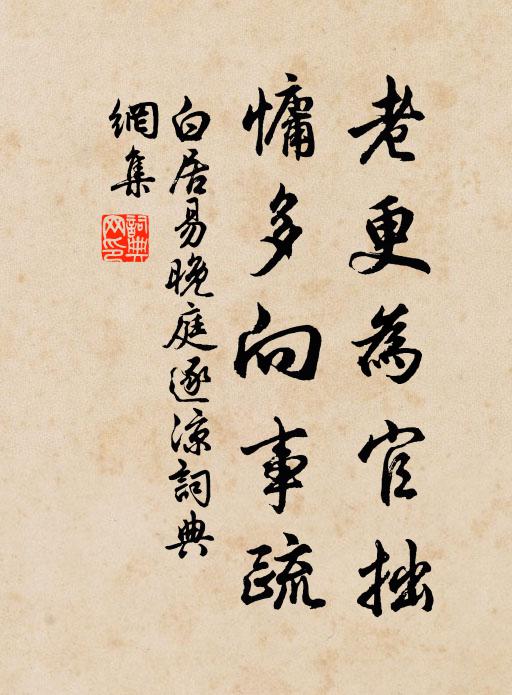 老更為官拙
慵多向事疏
白居易晚庭逐涼詞典
網集
詞典網印